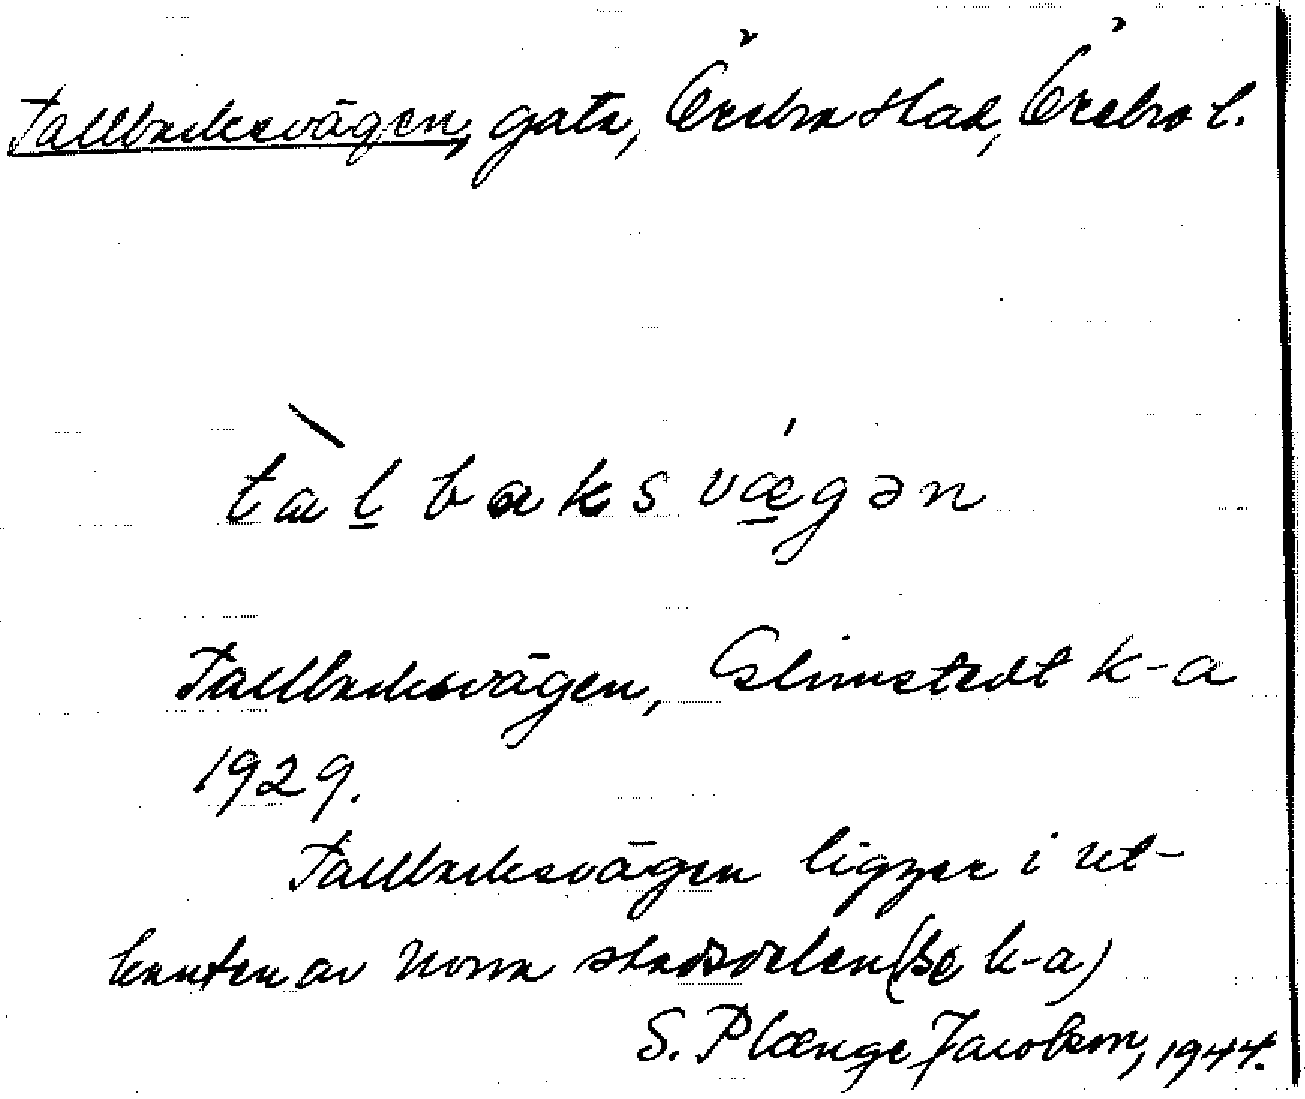 Tallbacksvägen, gata, Örebro stad, Örebro l.
tal baks vægən
Tallbacksvägen, Glimstedt k-a
1929.
Tallbacksvägen ligger i ut-
kanten av Norra stadsdelen (se k-a)
S. Plænge Jacobson, 1944.